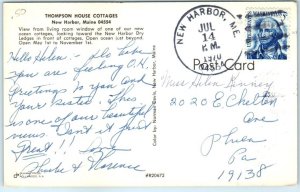 THOMPSON HOUSE COTTAGES
New Harbor, Maine 04554
View from living room window of one of our new
ocean cottages, looking toward New Harbor Dry
Ledges in front of cottages. Open ocean just beyond.
Open May 1st to November 1st.
Hello Helen:-
are feeling O.K.
Greetings to you and
your Sister. This
is one of our beautiful
New views. Isn't it just
Great!! Love
& Florence
#R20672
NEW HARBOR, ME.
JUL
14
P.M.
1970
Post Card
Miss Helen
2020 E Chelten
Ave
Phila
Pa
19138